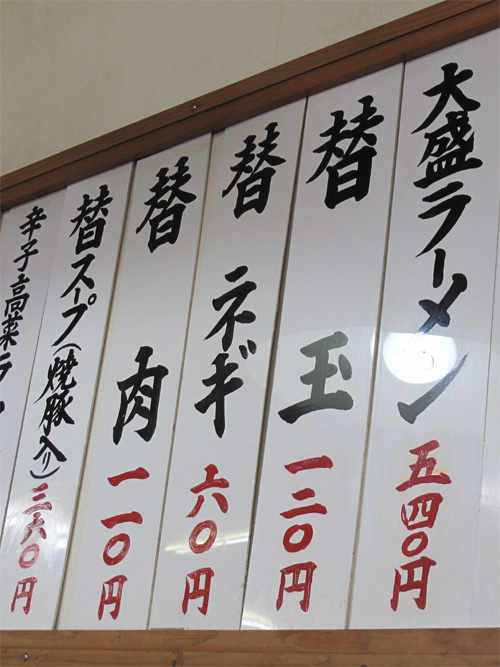 大盛ラーメン 五四〇円
替玉 一二〇円
替ネギ 六〇円
替肉 一一〇円
替スープ(焼豚入り) 三六〇円
辛子高菜ラ